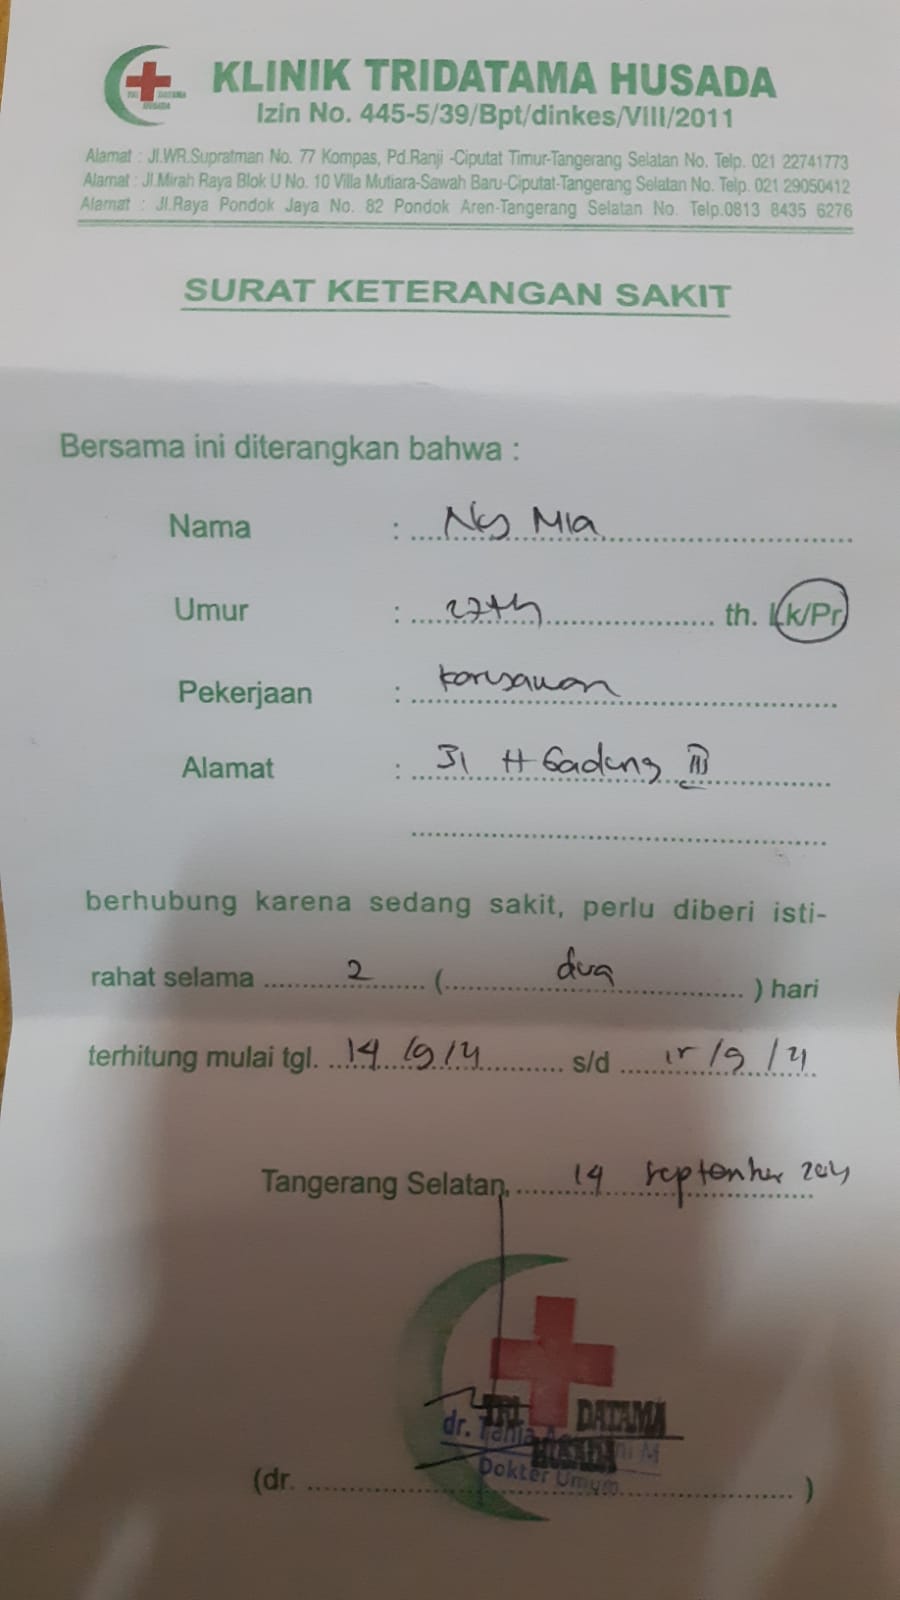 KLINIK TRIDATAMA HUSADA
Izin No. 445-5/39/Bpt/dinkes/VIII/2011
Alamat : Jl.WR.Supratman No. 77 Kompas, Pd.Ranji -Ciputat Timur-Tangerang Selatan No. Telp. 021 22741773
Alamat : Jl.Mirah Raya Blok U No. 10 Villa Mutiara-Sawah Baru-Ciputat-Tangerang Selatan No. Telp. 021 29050412
Alamat : Jl.Raya Pondok Jaya No. 82 Pondok Aren-Tangerang Selatan No. Telp.0813 8435 6276
SURAT KETERANGAN SAKIT
Bersama ini diterangkan bahwa :
Nama : Mia
Umur : 27th th. Lk/Pr
Pekerjaan : karyawan
Alamat : Jl H Gadung III
berhubung karena sedang sakit, perlu diberi isti-
rahat selama 2 ( dua ) hari
terhitung mulai tgl. 14/9/21 s/d 15/9/21
Tangerang Selatan, 14 September 2021
TRI DATAMA
HUSADA
dr. Tania
Dokter Umum
(dr. )